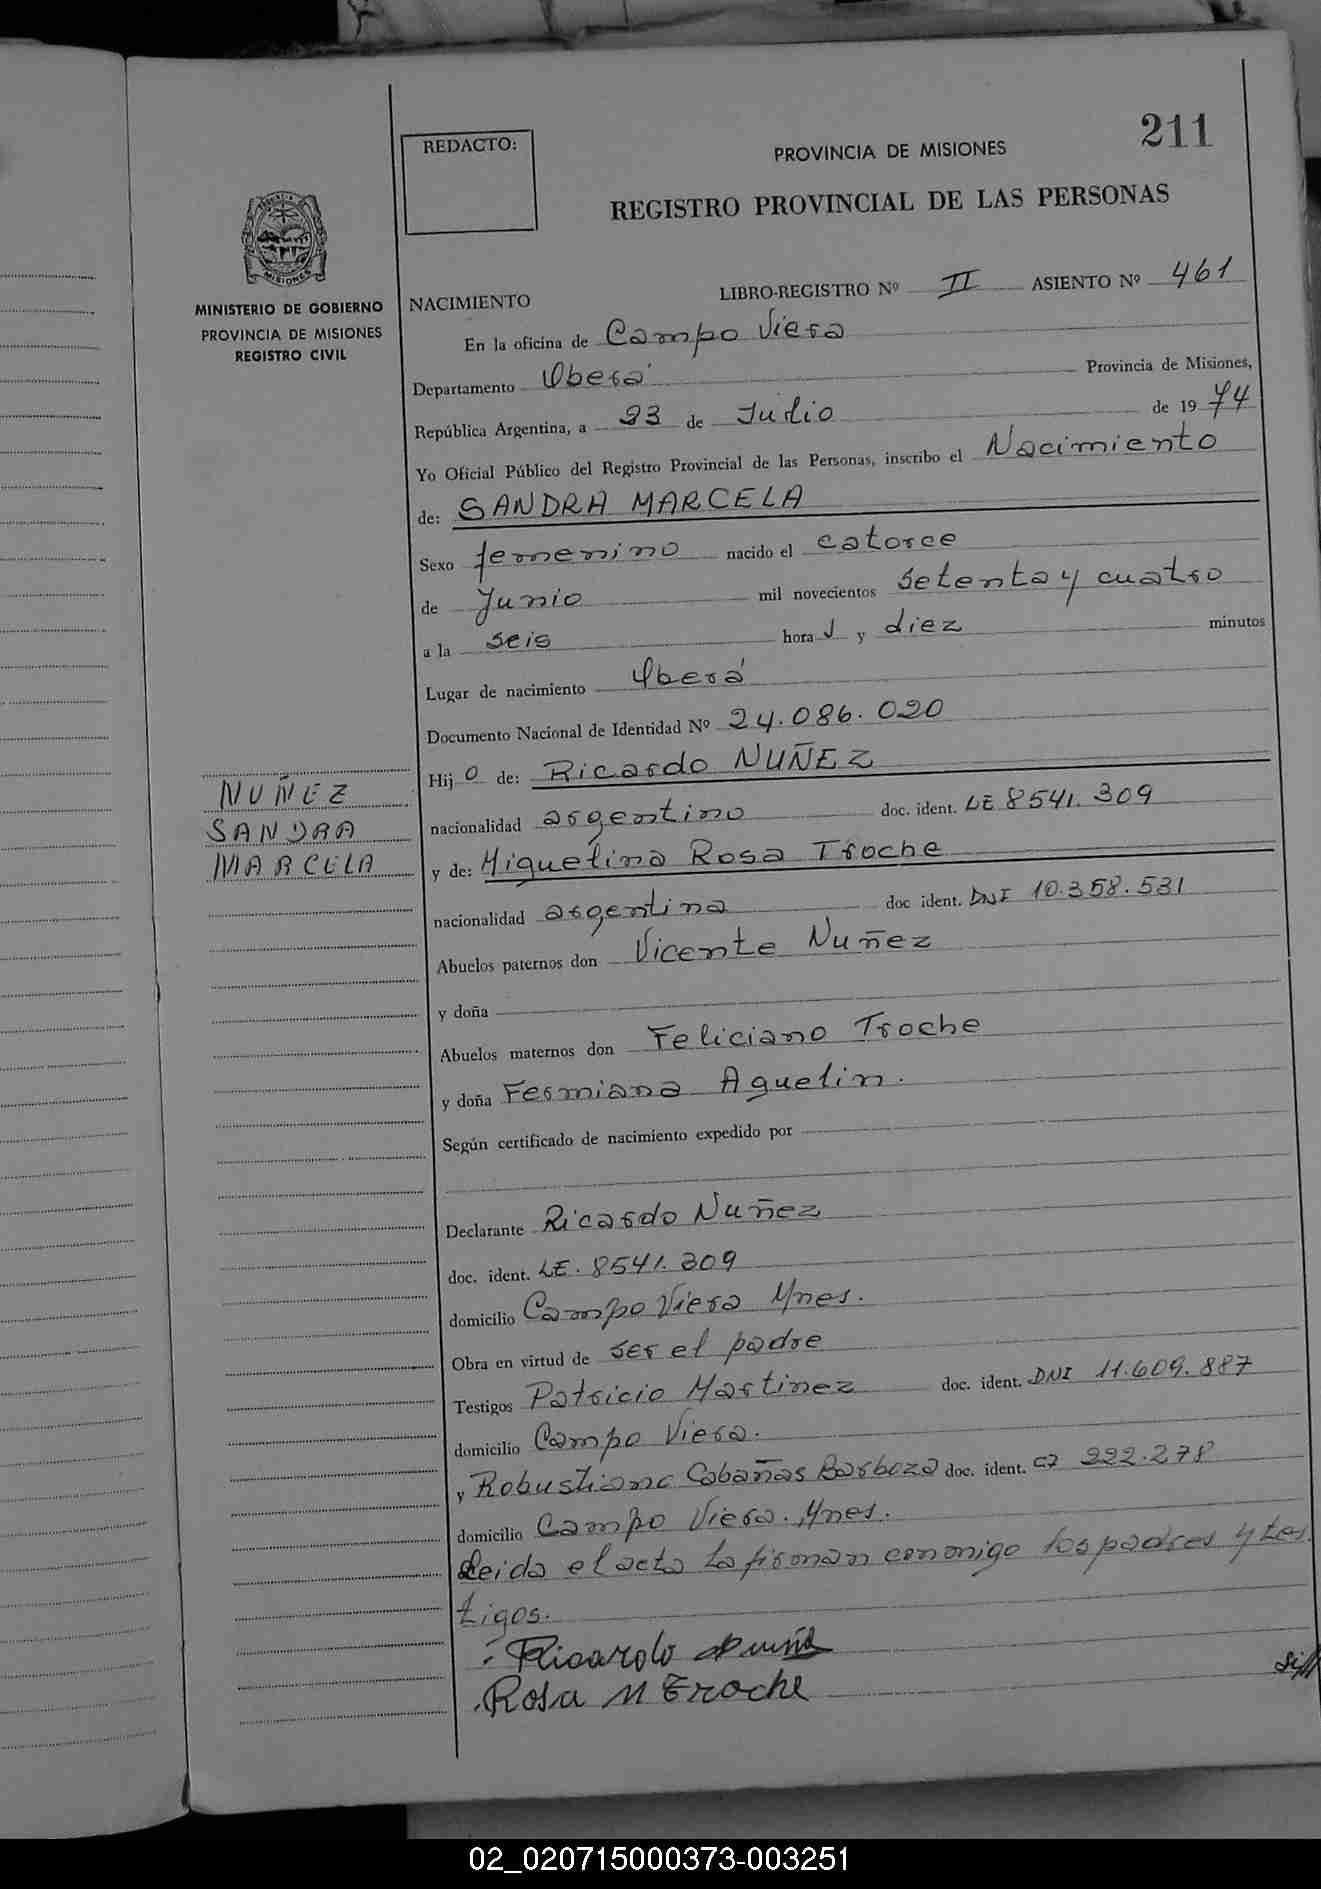 211
REDACTO:
PROVINCIA DE MISIONES
REGISTRO PROVINCIAL DE LAS PERSONAS
MISIONES
MINISTERIO DE GOBIERNO
PROVINCIA DE MISIONES
REGISTRO CIVIL
NACIMIENTO LIBRO-REGISTRO Nº II ASIENTO Nº 461
En la oficina de Campo Viera
Departamento Obera Provincia de Misiones,
República Argentina, a 23 de Julio de 19 74
Yo Oficial Público del Registro Provincial de las Personas, inscribo el Nacimiento
de: SANDRA MARCELA
Sexo femenino nacido el catorce
de Junio mil novecientos setenta y cuatro
a la seis hora s y diez minutos
Lugar de nacimiento Oberá
Documento Nacional de Identidad Nº 24.086.020
NUÑEZ
SANDRA
MARCELA
Hij o de: Ricardo NUÑEZ
nacionalidad argentino doc. ident. LE 8541.309
y de: Miquelina Rosa Troche
nacionalidad argentina doc ident. DNI 10.358.531
Abuelos paternos don Vicente Nuñez
y doña
Abuelos maternos don Feliciano Troche
y doña Fermiana Aguelin.
Según certificado de nacimiento expedido por
Declarante Ricardo Nuñez
doc. ident. LE. 8541.309
domicilio Campo Viera Mnes.
Obra en virtud de ser el padre
Testigos Patricio Martinez doc. ident. DNI 11.609.887
domicilio Campo Viera.
y Robustiano Cabañas Barboza doc. ident. CI 222.278
domicilio Campo Viera. Mnes.
Leida el acta la firman conmigo los padres y tes
tigos.
Ricardo Nuñez
Rosa M Troche
02_020715000373-003251